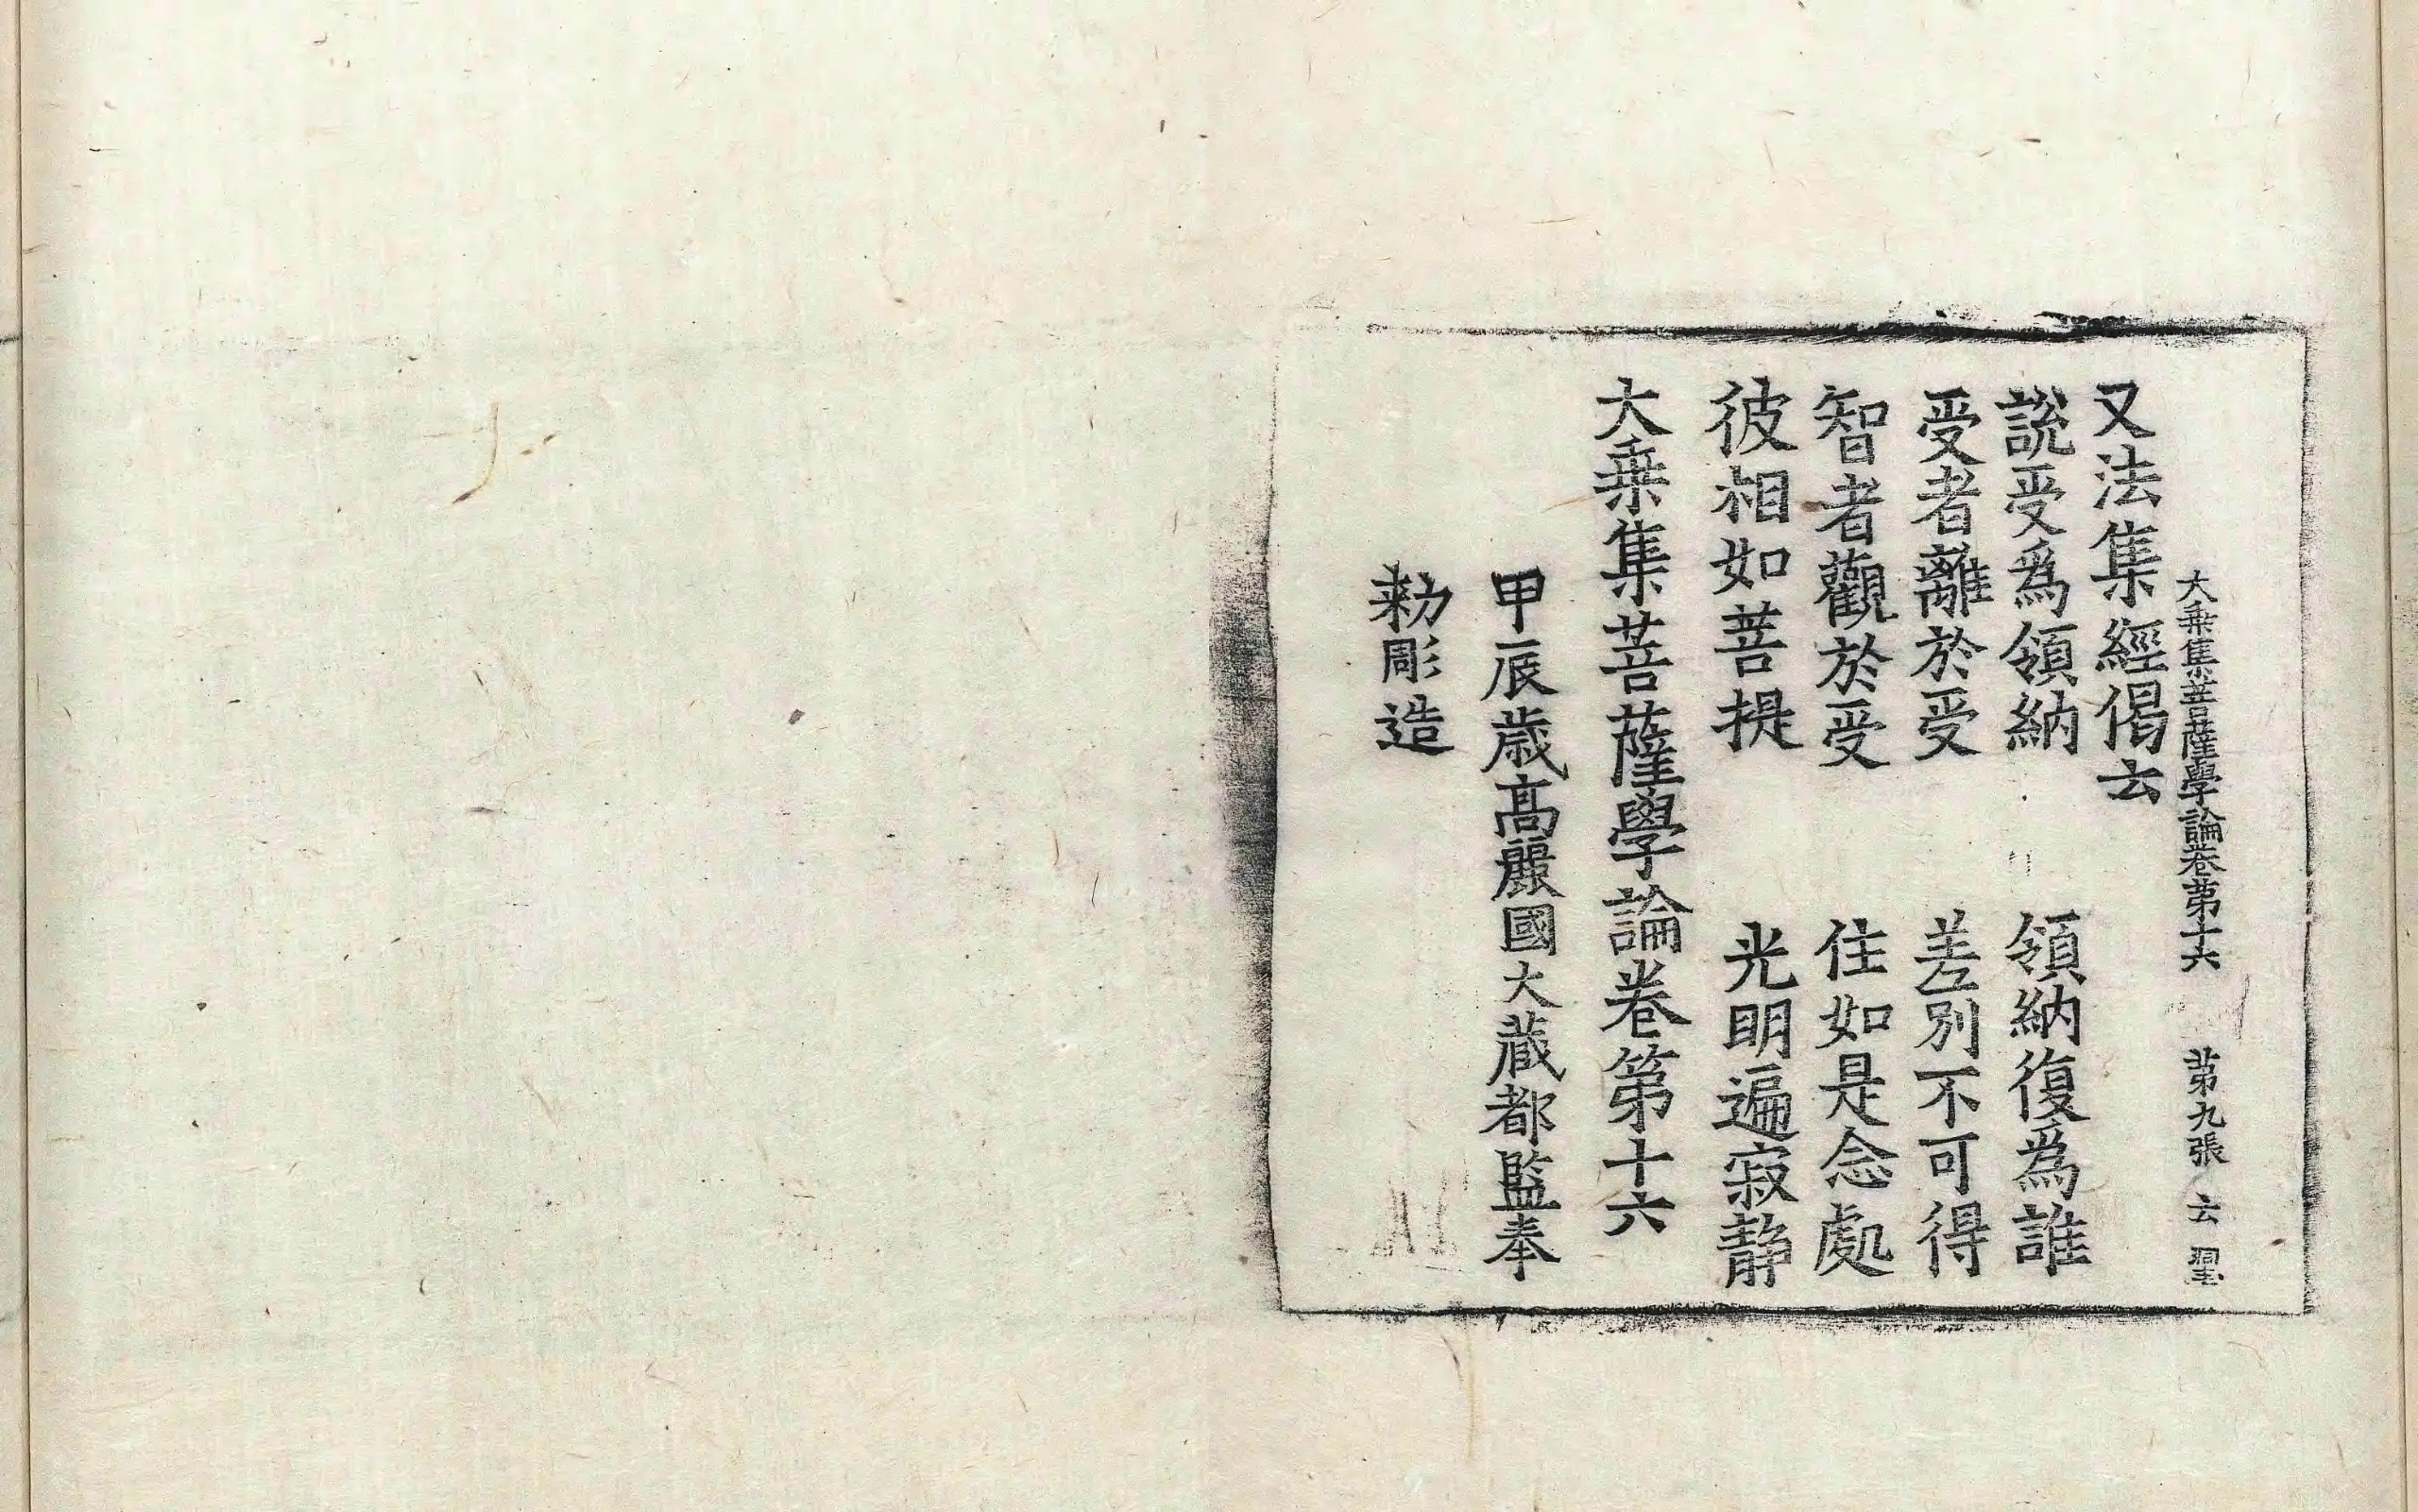 大乗集菩薩學論卷苐十六　苐九張　云
又法集經偈云
說受爲領納　領納復爲誰
受者離於受　差別不可得
智者觀於受　住如是念處
彼相如菩提　光明遍寂静
大乗集菩薩學論卷第十六
甲辰歳髙麗國大蔵都監奉
勑彫造